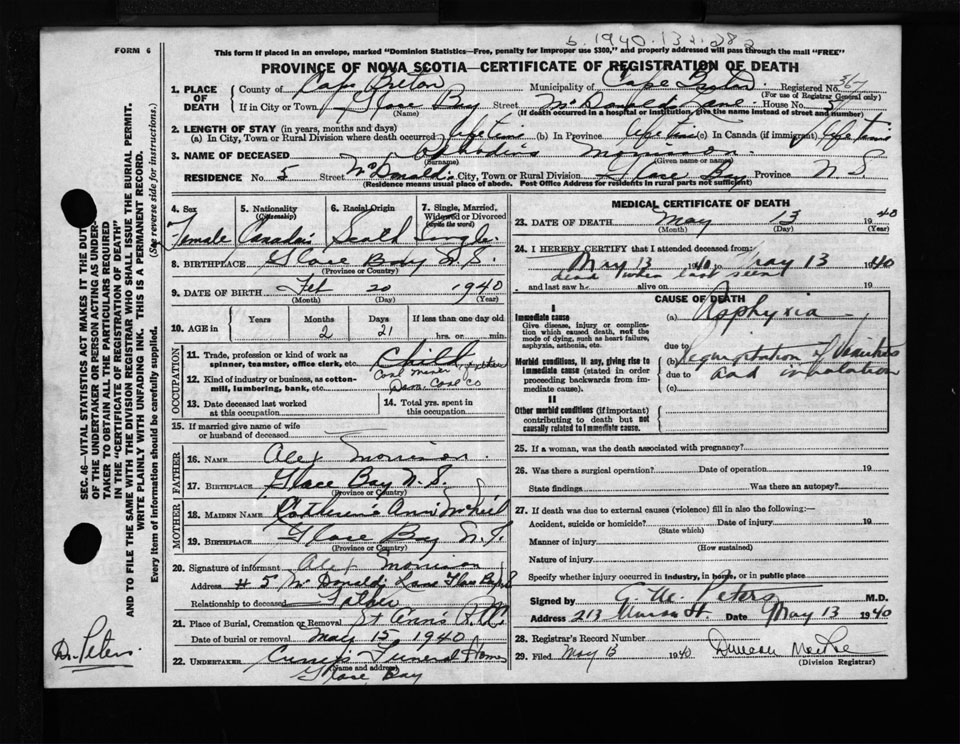 FORM 6
b. 1940. 132. 282
This form if placed in an envelope, marked "Dominion Statistics—Free, penalty for improper use $300," and properly addressed will pass through the mail "FREE"
PROVINCE OF NOVA SCOTIA—CERTIFICATE OF REGISTRATION OF DEATH
1. PLACE OF DEATH County of Cape Breton Municipality of Cape Breton Registered No.
(For use of Registrar General only)
If in City or Town Glace Bay Street McDonald's Lane House No. 5
(Name) (If death occurred in a hospital or institution, give the name instead of street and number)
2. LENGTH OF STAY (in years, months and days)
(a) In City, Town or Rural Division where death occurred life time (b) In Province life time (c) In Canada (if immigrant) life time
3. NAME OF DECEASED Morrison
(Surname) (Given name or names)
RESIDENCE No. 5 Street McDonald's City, Town or Rural Division Glace Bay Province N S
(Residence means usual place of abode. Post Office Address for residents in rural parts not sufficient)
4. Sex 5. Nationality (Citizenship) 6. Racial Origin 7. Single, Married, Widowed or Divorced (write the word)
Female Canadian Scotch Single
8. BIRTHPLACE Glace Bay N.S.
(Province or Country)
9. DATE OF BIRTH Feb 20 1940
(Month) (Day) (Year)
10. AGE in Years Months Days If less than one day old
2 21 hrs. or min.
OCCUPATION
11. Trade, profession or kind of work as spinner, teamster, office clerk, etc. Child, father
Coal miner
12. Kind of industry or business, as cotton-mill, lumbering, bank, etc. Dom. Coal Co
13. Date deceased last worked at this occupation 14. Total yrs. spent in this occupation
15. If married give name of wife or husband of deceased
FATHER
16. NAME Alex Morrison
17. BIRTHPLACE Glace Bay N.S.
(Province or Country)
MOTHER
18. MAIDEN NAME Catherine Ann McNeil
19. BIRTHPLACE Glace Bay N.S.
(Province or Country)
20. Signature of informant Alex Morrison
Address # 5 McDonald's Lane Glace Bay N S
Relationship to deceased Father
21. Place of Burial, Cremation or Removal St Ann's
Date of burial or removal May 15 1940
22. UNDERTAKER Curry's Funeral Home
(Name and address)
Glace Bay
MEDICAL CERTIFICATE OF DEATH
23. DATE OF DEATH May 13 1940
(Month) (Day) (Year)
24. I HEREBY CERTIFY that I attended deceased from:
May 13 1940 to May 13 1940
dead when last seen
and last saw h alive on 19
CAUSE OF DEATH
I
Immediate cause (a) Asphyxia
Give disease, injury or complication which caused death, not the mode of dying, such as heart failure, asphyxia, asthenia, etc.
due to
Morbid conditions, if any, giving rise to immediate cause (stated in order proceeding backwards from immediate cause). (b) Regurgitation of
due to and inhalation
(c)
II
Other morbid conditions (if important) contributing to death but not causally related to immediate cause.
25. If a woman, was the death associated with pregnancy?
26. Was there a surgical operation? Date of operation 19
State findings Was there an autopsy?
27. If death was due to external causes (violence) fill in also the following:—
Accident, suicide or homicide? Date of injury 19
(State which)
Manner of injury
(How sustained)
Nature of injury
Specify whether injury occurred in industry, in home, or in public place
Signed by Peters M.D.
Address 213 Union St. Date May 13 1940
28. Registrar's Record Number
29. Filed May 13 1940 Duncan
(Division Registrar)
SEC. 46—VITAL STATISTICS ACT MAKES IT THE DUTY
OF THE UNDERTAKER OR PERSON ACTING AS UNDER-
TAKER TO OBTAIN ALL THE PARTICULARS REQUIRED
IN THE "CERTIFICATE OF REGISTRATION OF DEATH"
AND TO FILE THE SAME WITH THE DIVISION REGISTRAR WHO SHALL ISSUE THE BURIAL PERMIT.
WRITE PLAINLY WITH UNFADING INK. THIS IS A PERMANENT RECORD.
Every item of information should be carefully supplied. (See reverse side for instructions.)
Dr. Peters.